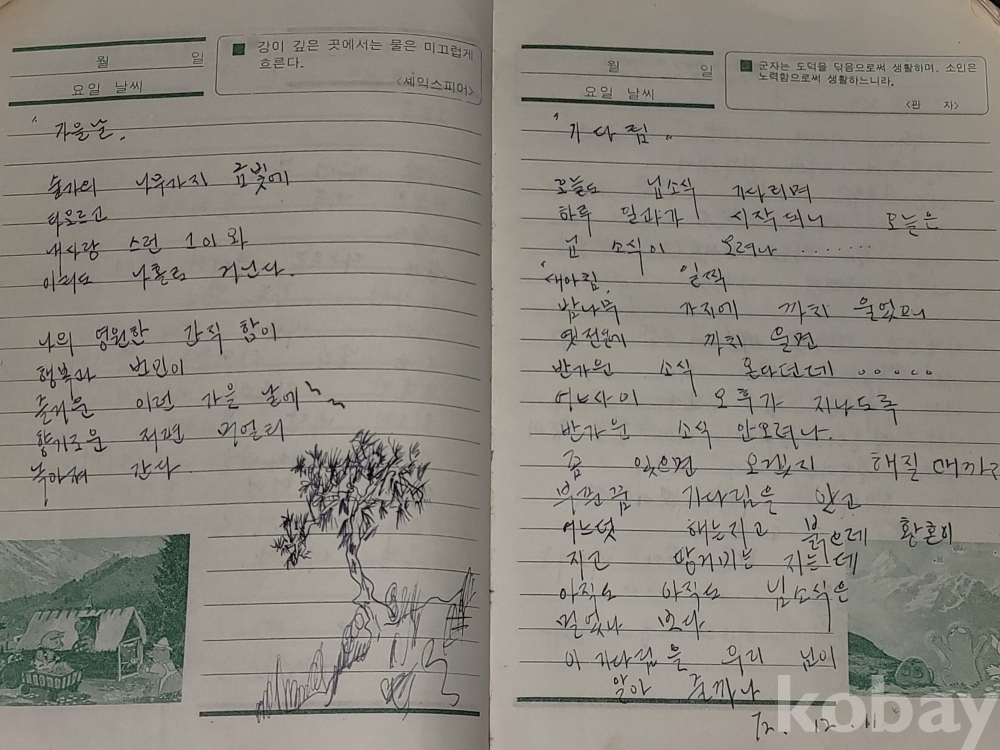 월 일
요일 날씨
강이 깊은 곳에서는 물은 미끄럽게
흐른다.
<셰익스피어>
"가을날"
나무가지 금빛에
타오르고
내사랑 스런 그이와
나홀로 거닌다.
나의 영원한 간직 함이
행복과 번민이
즐거운 이런 가을 날에
향기로운 저편 멀리
녹아져 간다.
월 일
요일 날씨
군자는 도덕을 닦음으로써 생활하며, 소인은
노력함으로써 생활하느니라.
<관 자>
"기다림"
오늘도 님소식 기다리며
하루 일과가 시작되니 오늘은
님 소식이 오려나 ........
새아침, 일찍
밤나무 가지에 까치 울었으니
옛전에 까치 울면
반가운 소식 온다던데 .....
어느사이 오후가 지나도록
반가운 소식 안오려나.
좀 있으면 오겠지 해질 때까지
기다림을 안고
어느덧 해는지고 붉으레 황혼이
지고 땅거미는 지는데
아직도 아직도 님소식은
멀었나 보다
이 기다림을 우리 님이
알아 줄까나
72. 12. 11
kobay